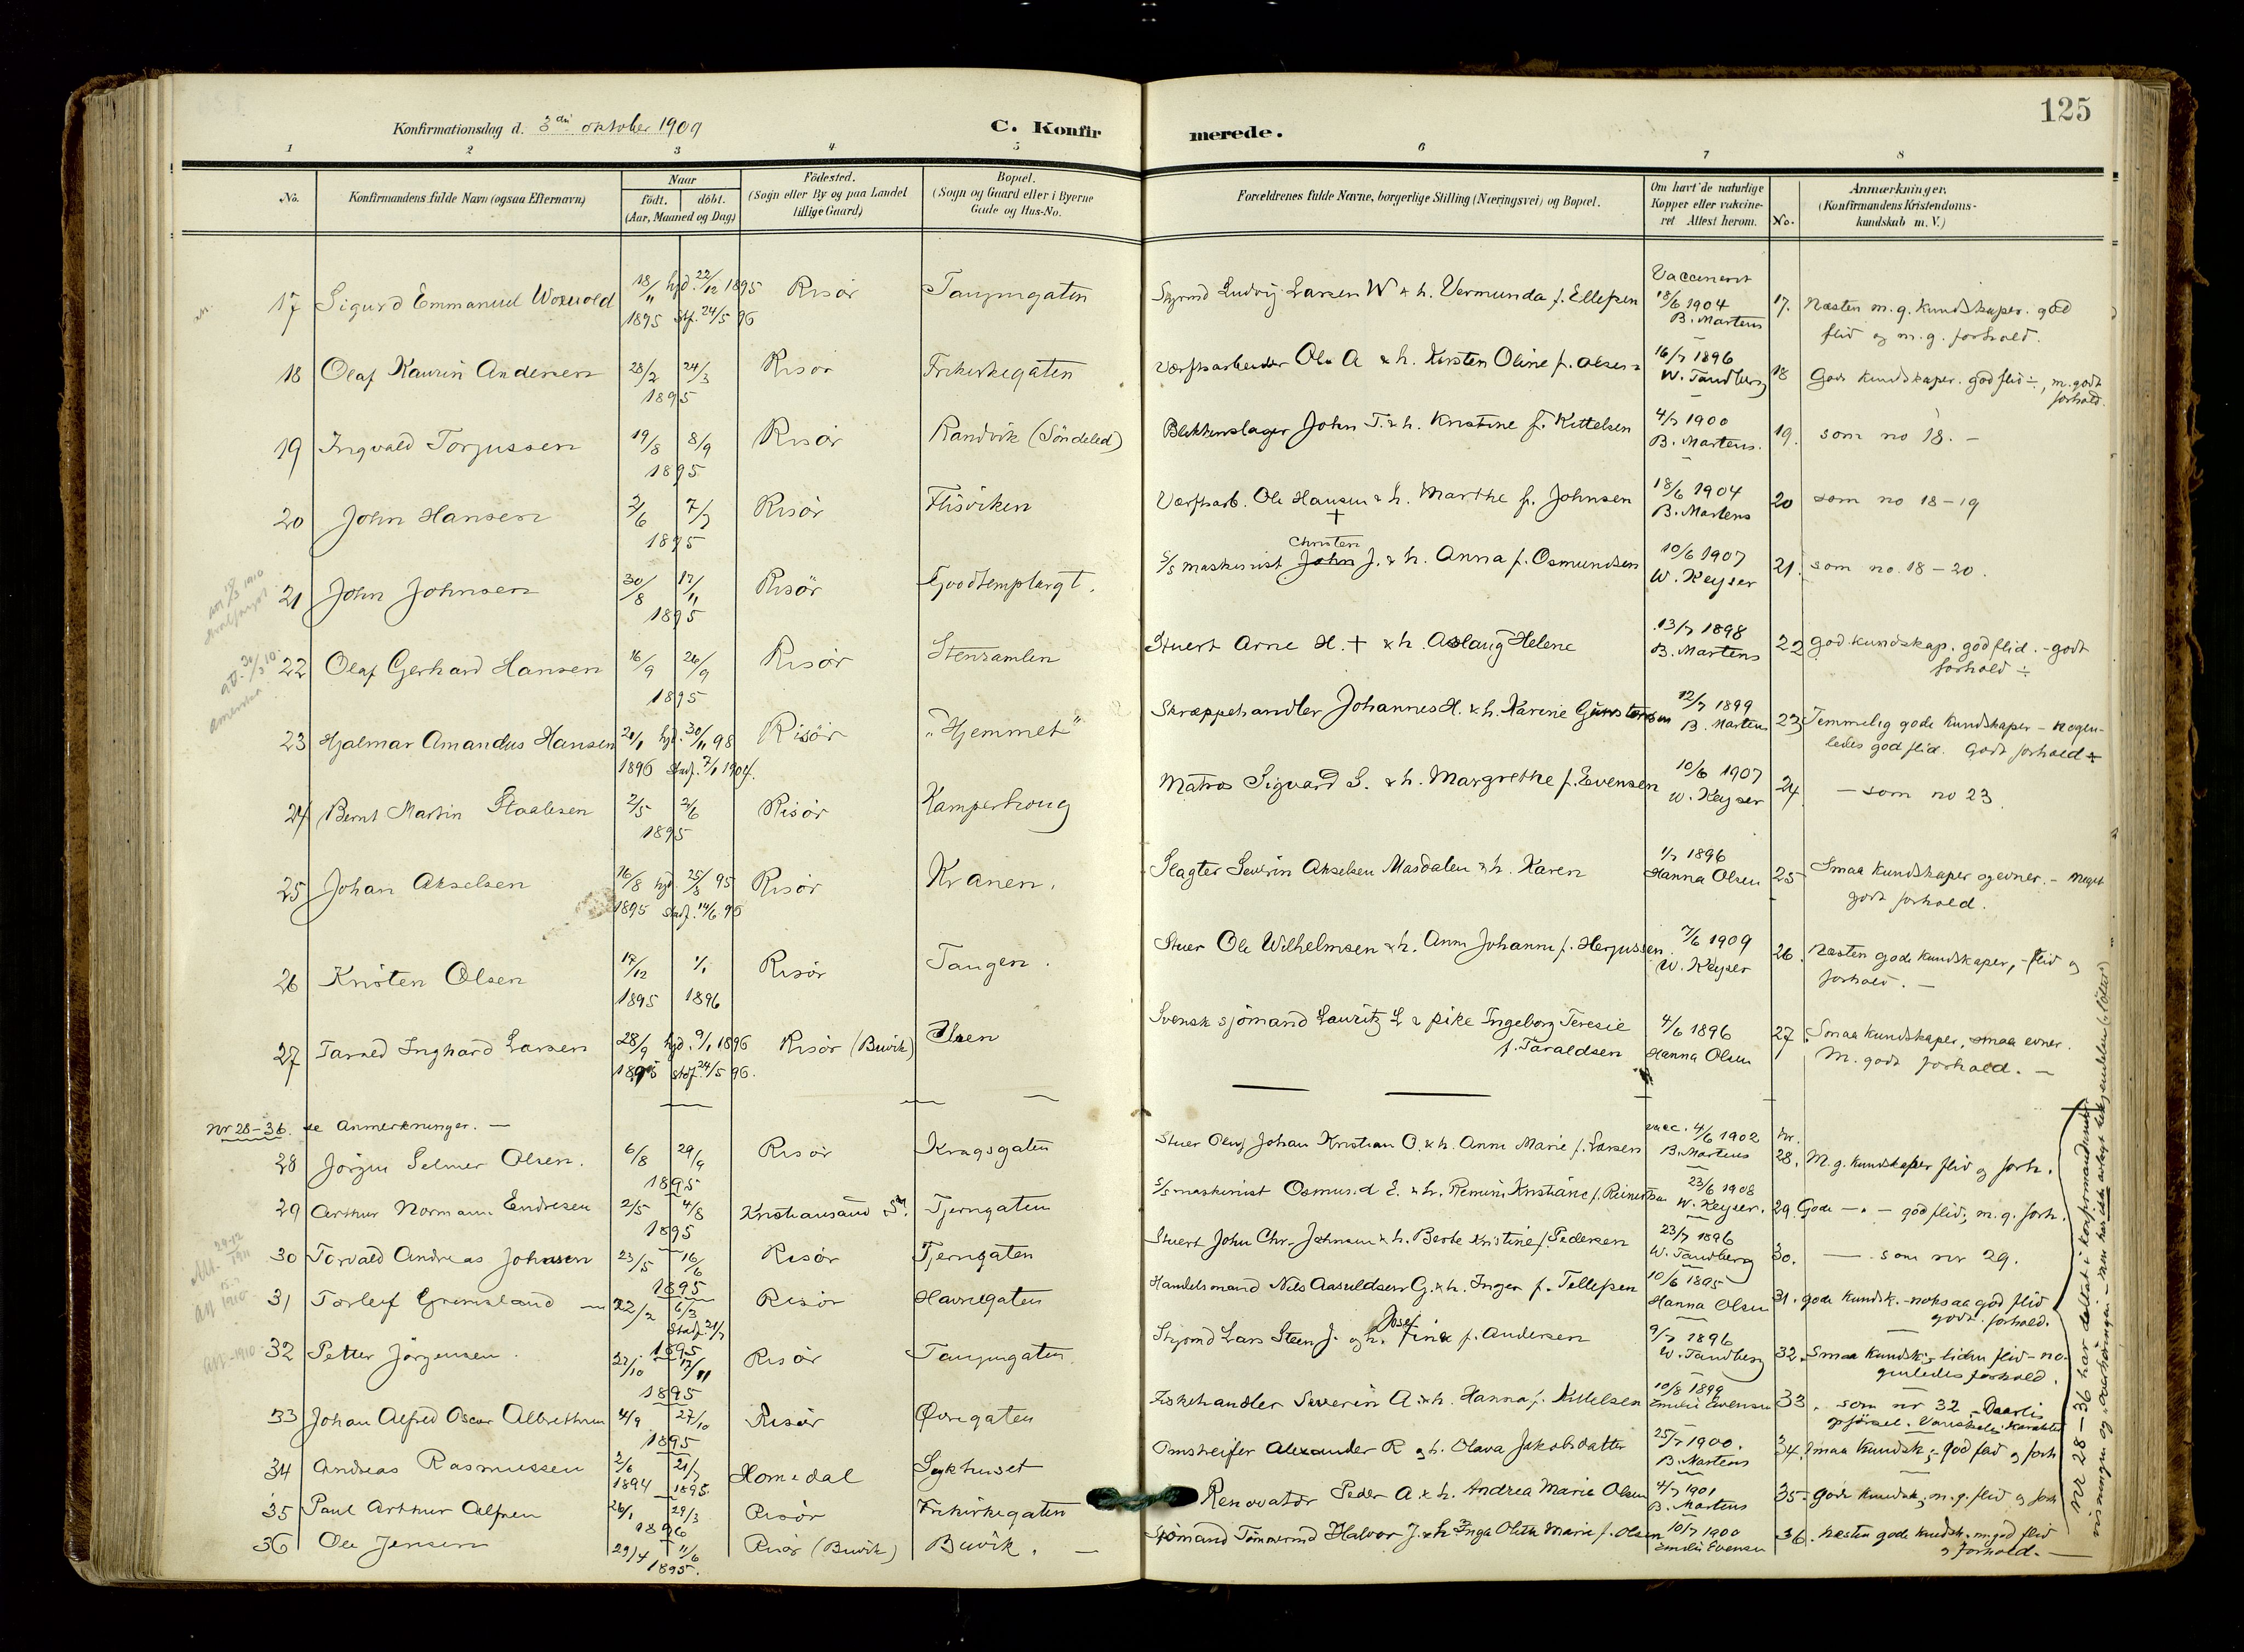 125
Konfirmationsdag d. 3die oktober 1909
C. Konfir merede.
1 2 3 4 5 6 7 8
No. Konfirmandens fulde Navn (ogsaa Efternavn) Naar født. døbt. (Aar, Maaned og Dag) Fødested. (Sogn eller By og paa Landet tillige Gaard) Bopæl. (Sogn og Gaard eller i Byerne Gade og Hus-No. Forældrenes fulde Navne, borgerlige Stilling (Næringsvei) og Bopæl. Om havt de naturlige Kopper eller vakcineret Attest herom. No. Anmærkninger. (Konfirmandens Kristendomskundskab m. V.)
17 Sigurd Emmanuel Woxvold 18/11 1895 hjd. 22/12 1895 Stf. 24/5 96 Risör Tangengaten Styrmd Ludvig Larsen W & h. Vermunda f. Ellefsen Vaccineret 18/6 1904 B. Martens 17. Næsten m. g. kundskaper. god flid og m. g. forhold.
18 Olaf Kaurin Andersen 28/2 24/3 1895 Risör Frikirkegaten Værftsarbeider Ole A & h. Kirsten Oline f. Olsen 16/7 1896 W. Tandberg 18 Gode kundskaper. god flid ÷, m. godt forhold.
19 Ingvald Torjussen 19/8 8/9 1895 Risör Randvik (Söndeled) Blikkenslager John T. & h. Kristine f. Kittelsen 4/7 1900 B. Martens. 19. som no 18. -
20 John Hansen 2/6 7/7 1895 Risör Flisviken Værftsarb. Ole Hansen + & h. Marthe f. Johnsen 18/6 1904 B. Martens 20 som no 18-19
21 John Johnsen 30/8 17/11 1895 Risör Goodtemplargt. S/s maskinist John Christen J. & h. Anna f. Osmundsen 10/6 1907 W. Keyser 21. som no. 18-20.
22 Olaf Gerhard Hansen 16/9 26/9 1895 Risör Stensamlen Stuert Arne H. + & h. Aslaug Helene 13/7 1898 B. Martens 22 god kundskap. god flid. - godt forhold ÷
23 Hjalmar Amandus Hansen 21/1 1896 hjd. 30/11 98 Stadf. 7/1 1904. Risör "Hjemmet" Skræppehandler Johannes H. & h. Karine Gunstensen 12/7 1899 B. Martens 23 Temmelig gode kundskaper - nogenledes god flid. Godt forhold ÷
24 Bernt Martin Staalesen 2/5 2/6 1895 Risör Kamperhoug Matros Sigvard S. & h. Margrethe f. Evensen 10/6 1907 W. Keyser 24. - som no 23.
25 Johan Akselsen 16/8 1895 hjd. 25/8 95 Stadf. 14/6 96 Risör Kranen. Slagter Severin Akselsen Masdalen & h. Karen 1/7 1896 Hanna Olsen 25 Smaa kundskaper og evner. - meget godt forhold.
26 Kristen Olsen 17/12 1895 1/1 1896 Risör Tangen. Stuer Ole Wilhelmsen & h. Anne Johanne f. Herjussen 7/6 1909 W. Keyser 26. Næsten gode kundskaper, - flid og forhold. -
27 Tarald Inghard Larsen 28/9 1895 hjd. 9/1 1896 stdf. 24/5 96. Risör (Buvik) Svensk sjömand Lauritz L & pike Ingeborg Teresie f. Taraldsen 4/6 1896 Hanna Olsen 27. Smaa kundskaper, smaa evner. M. godt forhold. -
nr 28-36. se Anmerkninger. -
28 Jörgen Selmer Olsen. 6/8 29/9 1895 Risör Kragsgaten Stuer Oluf Johan Kristian O. & h. Anne Marie f. Larsen vacc. 4/6 1902 B. Martens nr. 28. M. g. kundskaper flid og forh.
29 Arthur Normann Endresen 2/5 4/8 1895 Kristiansand S. Tjerngaten S/s maskinist Osmund E. & h. Remine Kristiane f. Reinertsen 23/6 1908 W. Keyser. 29. Gode - " - god flid, m. g. forh.
30 Torvald Andreas Johnsen 23/5 16/6 1895 Risör Tjerngaten Stuert John Chr. Johnsen & h. Berte Kristine f. Pedersen 23/7 1896 W. Tandberg 30. - som nr 29.
31 Torleif Grimsland 22/2 6/3 Stadf. 21/7 1895 Risör Havnegaten Handelsmand Nils Aasuldsen G. & h. Inger f. Tellefsen 10/6 1895 Hanna Olsen 31. gode kundsk. - noksaa god flid godt forhold.
32 Petter Jörgensen. 22/10 17/11 1895 Risör Tangengaten. Styrmd Lars Steen J. og h. Josefine f. Andersen 9/7 1896 W. Tandberg 32. Smaa kundsk; liden flid - nogenledes forhold.
33 Johan Alfred Oscar Albrethsen 4/9 27/10 1895 Risör Øvregaten Fiskehandler Severin A. & h. Hanna f. Kittelsen 10/8 1899 Emilie Evensen 33. som nr 32. - Daarlig opførsel. Vanskelig karakter
34 Andreas Rasmussen 2/6 1894 21/7 1895. Homedal Sykhuset Omstreifer Alexander R og h. Olava Jakobsdatter 25/7 1900. B. Martens 34. Smaa kundsk; - god flid og forh
35 Paul Arthur Alfsen 26/1 29/3 1896 Risör Frikirkegaten Renovatør Peder A. & h. Andrea Marie Olsen 4/7 1901 B. Martens 35. gode kundsk, m. g. flid og forh
36 Ole Jensen 29/4 11/6 1895. Risör (Buvik) Buvik. - Sjömand Tömmermd Halvor J. & h. Inga Olette Marie f. Olsen 10/7 1900 Emilie Evensen 36. næsten gode kundsk. m. god flid og forhold. -
nr 28-36 har deltat i konfirmandunder-
visningen og "overhöringen" - men har ikke avlagt bekjendelsen (löftet)